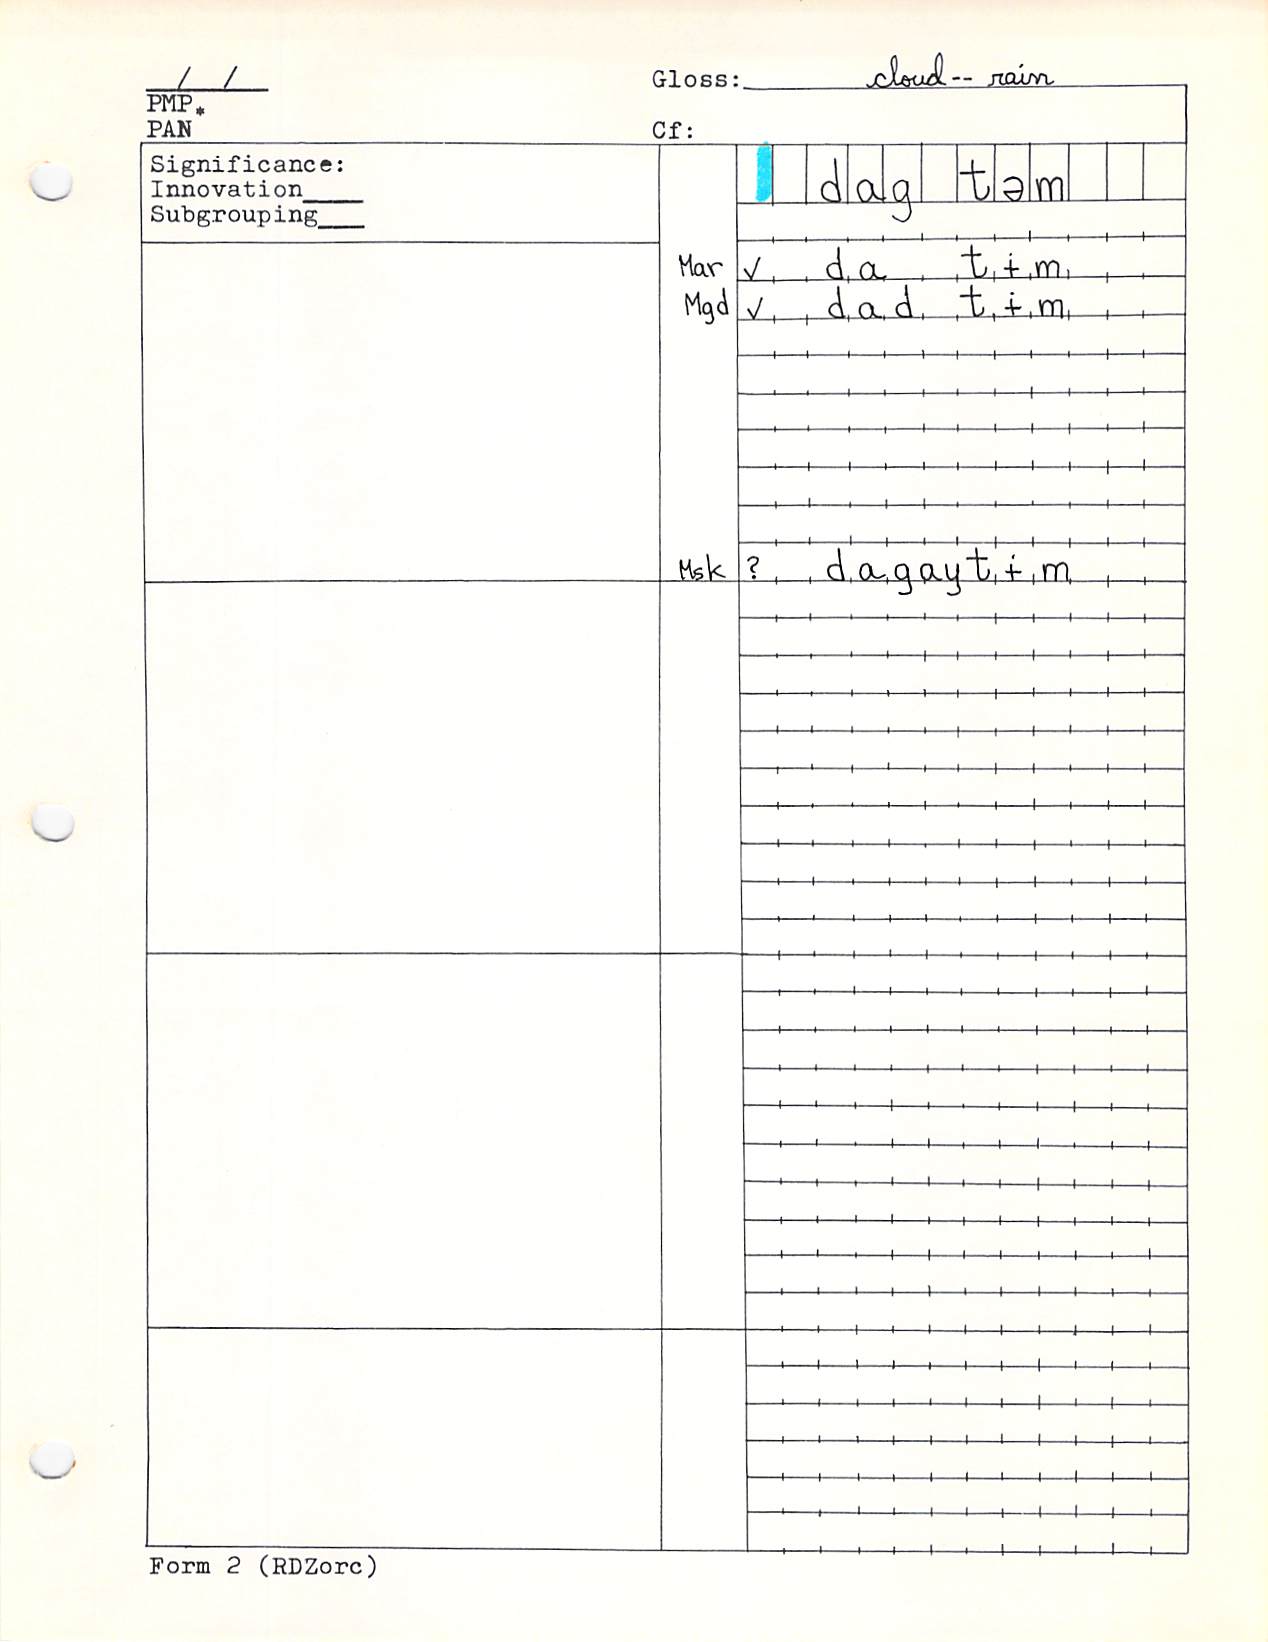 / / Gloss: cloud -- rain
PMP*
PAN Cf:
Significance:
Innovation____
Subgrouping____
dag təm
Mar ✓ da tɨm
Mgd ✓ dad tɨm
Msk ? dagaytɨm
Form 2 (RDZorc)